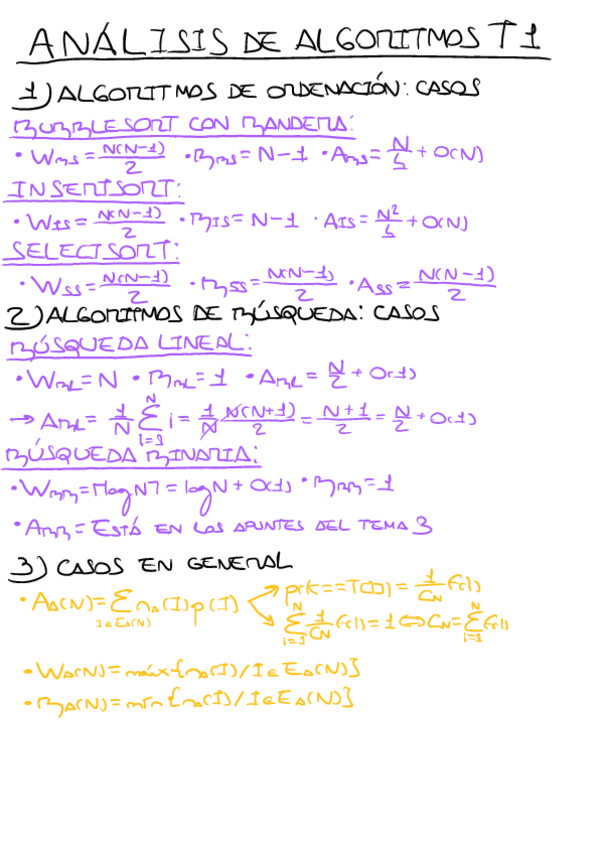 ANÁLISIS DE ALGORITMOS T1
1) ALGORITMOS DE ORDENACIÓN: CASOS
BURBLESORT CON BANDERA:
• W_BS = N(N-1)/2 • B_BS = N-1 • A_BS = N/4 + O(N)
INSERTSORT:
• W_IS = N(N-1)/2 • B_IS = N-1 • A_IS = N²/4 + O(N)
SELECTSORT:
• W_SS = N(N-1)/2 • B_SS = N(N-1)/2 • A_SS = N(N-1)/2
2) ALGORITMOS DE BÚSQUEDA: CASOS
BÚSQUEDA LINEAL:
• W_BL = N • B_BL = 1 • A_BL = N/2 + O(1)
→ A_BL = 1/N ∑_{i=1}^{N} i = 1/N N(N+1)/2 = N+1/2 = N/2 + O(1)
BÚSQUEDA BINARIA:
• W_BB = ⌈log N⌉ = log N + O(1) • B_BB = 1
• A_BB = ESTÁ EN LOS APUNTES DEL TEMA 3
3) CASOS EN GENERAL
• A_A(N) = ∑_{I∈E_A(N)} n_A(I)p(I)
p(k==T[i]) = 1/C_N f(i)
∑_{i=1}^{N} 1/C_N f(i) = 1 ⇔ C_N = ∑_{i=1}^{N} f(i)
• W_A(N) = máx{n_A(I)/I∈E_A(N)}
• B_A(N) = mín{n_A(I)/I∈E_A(N)}